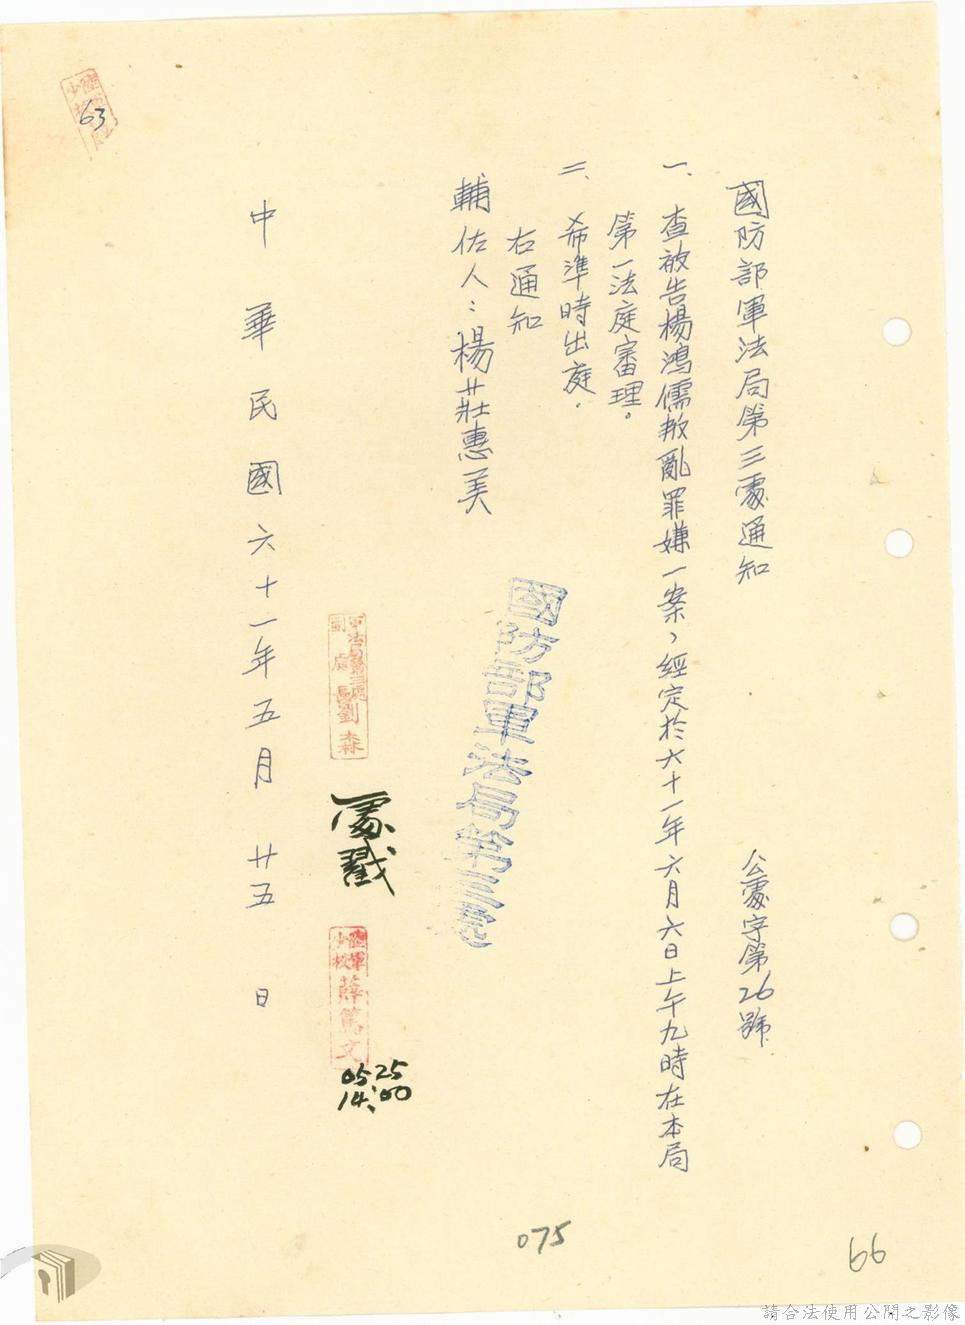 國防部軍法局第三處通知
公處字第26號
一、查被告楊鴻儒叛亂罪嫌一案，經定於六十一年六月六日上午九時在本局
第一法庭審理。
二、希準時出庭.
右通知
輔佐人：楊廾莊惠美
國防部軍法局第三處
副處長劉森
處戳
陸軍少校薛篤文
05 25
14:00
中華民國六十一年五月廿五日
63
075
66
請合法使用公開之影像